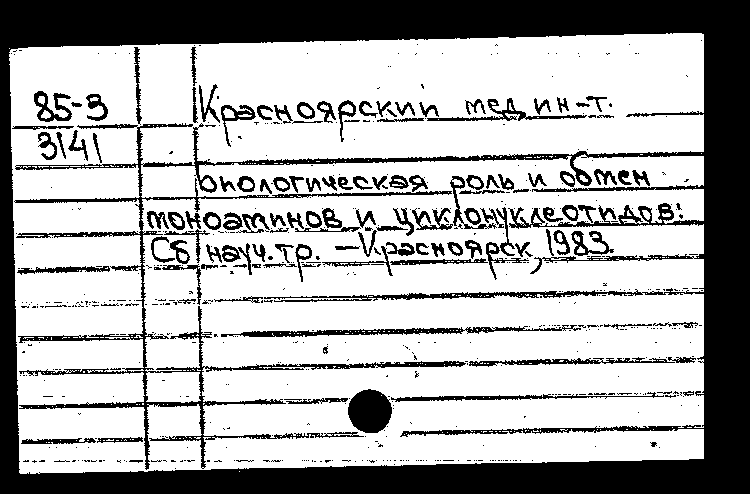 85-3 Красноярский мед. ин-т.
3141
Биологическая роль и обмен
моноаминов и циклонуклеотидов:
Сб науч.тр. — Красноярск, 1983.